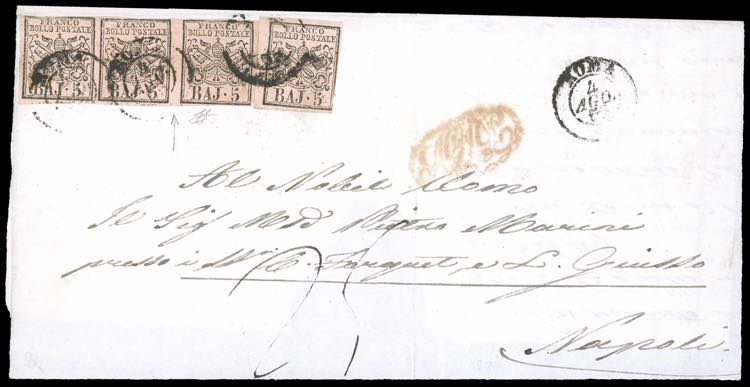 FRANCO BOLLO POSTALE BAJ. 5
FRANCO BOLLO POSTALE BAJ. 5
FRANCO BOLLO POSTALE BAJ. 5
FRANCO BOLLO POSTALE BAJ. 5
ROMA
4
AGO
Al Nobil Uomo
Il Sig Pietro Marini
presso i C. Forquet e L. Giusso
Napoli